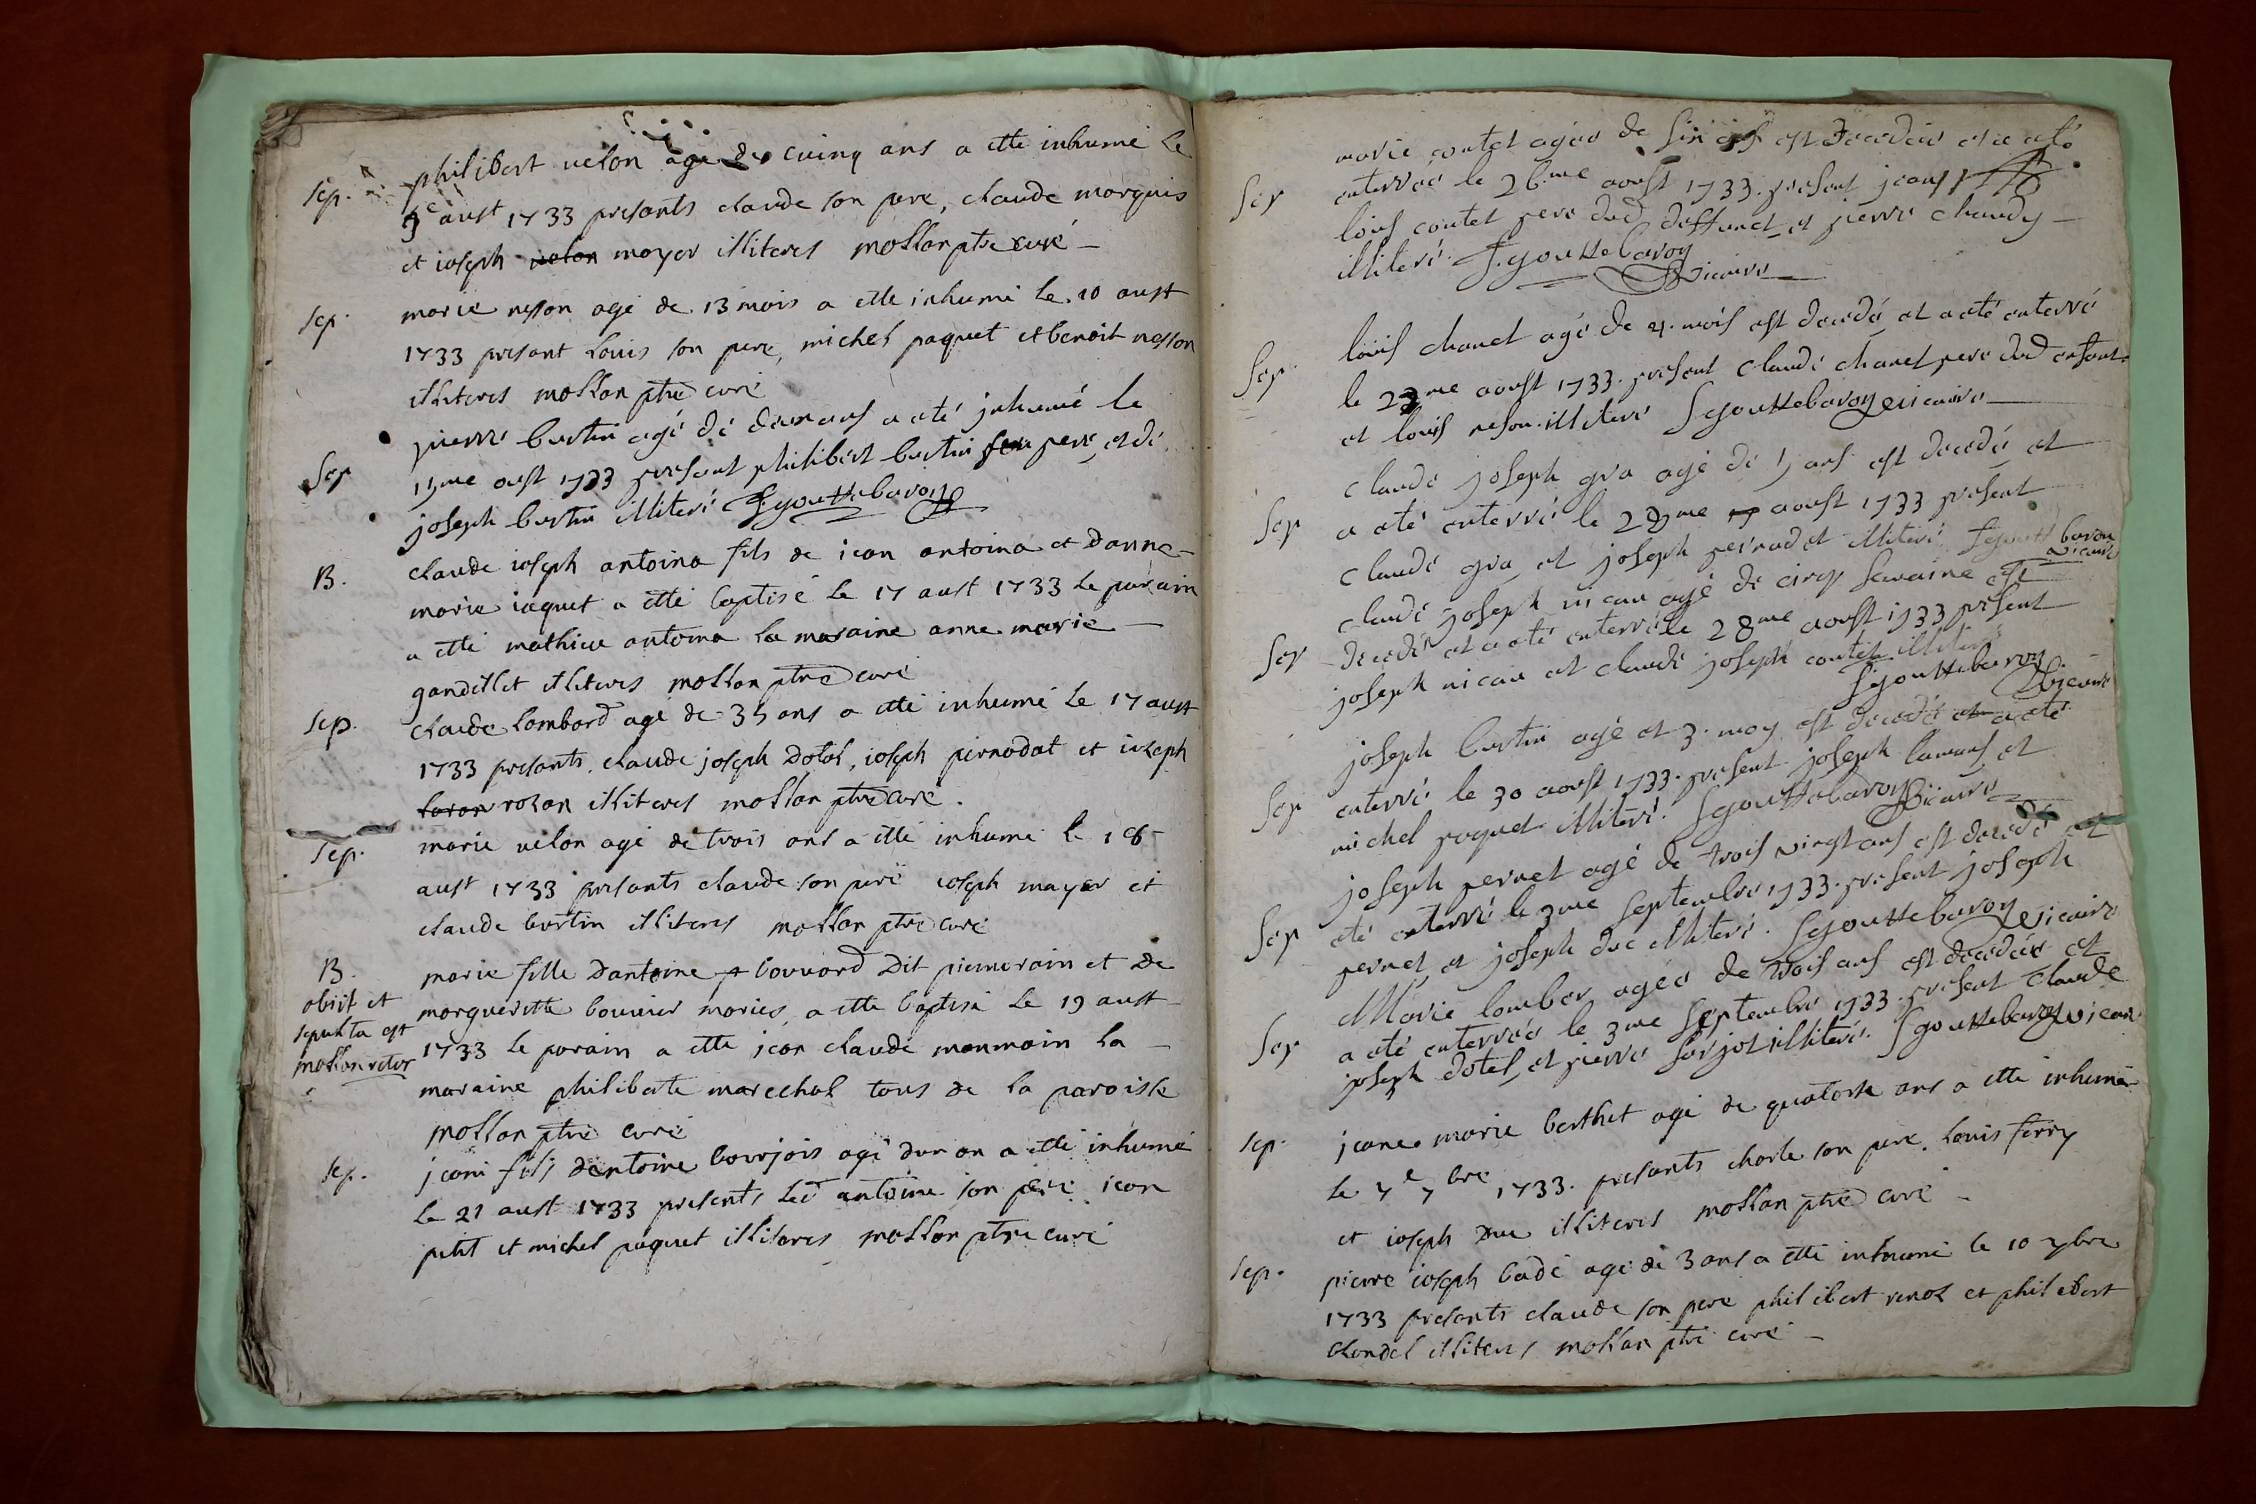 Sep.
philibert velon agé de cuinq ans a etté inhumé le
9e aust 1733 presants claude son pere, claude marquis
et ioseph velon mayer illiteres mollan ptre curé
Sep.
marie nesson agé de 13 mois a etté inhumé le 10 aust
1733 presant louis son pere, michel paquet et benoit nesson
illiteres mollan ptre curé
Sep
pierre bertin agé de deux ans a eté inhumé le
aust 1733 present philibert bertin son pere et de
joseph bertin illiteré F. gouttebaron
B.
claude ioseph antoina fils de iean antoina et danne
marie iaquet a etté baptisé le 17 aust 1733 le parain
a etté mathieu antoina la maraine anne marie
gandillet illiteres mollan ptre curé
Sep.
claude lombard agé de 35 ans a etté inhumé le 17 aust
1733 presants claude joseph Dotal, ioseph pernodat et ioseph
rolan illiteres mollan ptre curé.
Sep.
marie velon agé de trois ans a etté inhumé le 18
aust 1733 presants claude son peré ioseph mayer et
claude bertin illiteres mollan ptre curé
B.
obiit et
sepulta est
mollan retor
marie fille Dantoine bouvard Dit piemorain et de
marguerette bouvier mariés, a etté baptisé le 19 aust
1733 le parain a etté jean claude monmain la
maraine philiberte marechal tous de la paroisse
mollan ptre curé
Sep.
jeani fils dentoine bourjois agé dun an a etté inhumé
le 21 aust 1733 presents led antoine son pere iean
petit et michel paquet illiteres mollan ptre curé
marie contet agée de six ans est Decedée et a eté
Sep
enterrée le 26.me aoust 1733. present jean
louis contet pere dud deffunct et pierre chaudy
illiteré. F. gouttebaron
Vicaire
louis chanel agé de 4. mois est decedé et a eté enterré
Sep.
le 23me aoust 1733. present claude chanel pere dud enfant
et louis neson illiteré F gouttebaron vicaire
claude joseph gra agé de ans est decedé et
Sep
a eté enterré le me aoust 1733 present
claude gra et joseph pernodet illiteré F goutt baron
vicaire
claude joseph nicau agé de cinq semaine est
Sep
decedé et a eté enterré le 28me aoust 1733 present
joseph nicau et claude joseph contet illiteré
F gouttebaron
Vicaire
joseph bertin agé et 3. moy est decedé et a eté
Sep
enterré le 30 aoust 1733. present joseph et
michel paquet illiteré. F gouttebaron Vicaire
joseph pernet agé de trois vingt ans est decedé et
Sep
eté enterré le 3me septembre 1733. present joseph
pernet et joseph duc illiteré. F gouttebaron vicaire
Marie lombar agée de trois ans est decedée et
Sep
a eté enterrée le 3me septembre 1733. present claude
joseph dotel et pierre illiteré. F gouttebaron vicaire
Sep.
jeane marie berthet agé de quatorse ans a etté inhumé
le 7e 7bre 1733. presants charle son pere, louis ferry
et ioseph Duc illiteres mollan ptre curé
Sep.
pierre ioseph badé agé de 3 ans a etté inhumé le 10 7bre
1733 presants claude son pere philibert renol et philibert
chandel illiteres mollan ptre curé